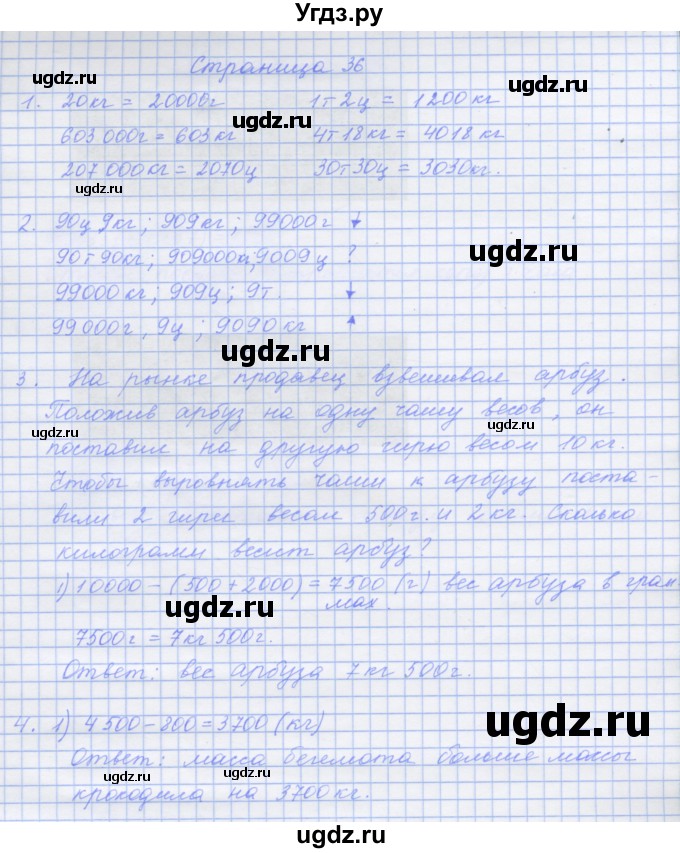 Угдз.ру
Страница 36
ugdz.ru ugdz.ru
1. 20кг = 20000г 1т2ц = 1200кг
ugdz.ru
603000г = 603кг 4т18кг = 4018кг
ugdz.ru
207000кг = 2070ц 30т30ц = 3030кг.
ugdz.ru
2. 90ц9кг; 909кг; 99000г ↓
ugdz.ru
90т90кг; 909000кг; 9009ц ?
99000кг; 909ц; 9т. ↓
99000г, 9ц; 9090кг ↑
ugdz.ru
3. На рынке продавец взвешивал арбуз.
Положив арбуз на одну чашу весов, он
ugdz.ru ugdz.ru
поставил на другую гирю весом 10кг.
Чтобы выровнять чаши к арбузу поста-
вили 2 гири весом 500г. и 2кг. Сколько
килограмм весит арбуз?
1) 10000 - (500 + 2000) = 7500 (г) вес арбуза в грам
мах.
ugdz.ru
7500г = 7кг 500г.
Ответ: вес арбуза 7кг 500г.
4. 1) 4500 - 800 = 3700 (кг)
ugdz.ru
Ответ: масса бегемота больше массы
ugdz.ru ugdz.ru
крокодила на 3700кг.
ugdz.ru